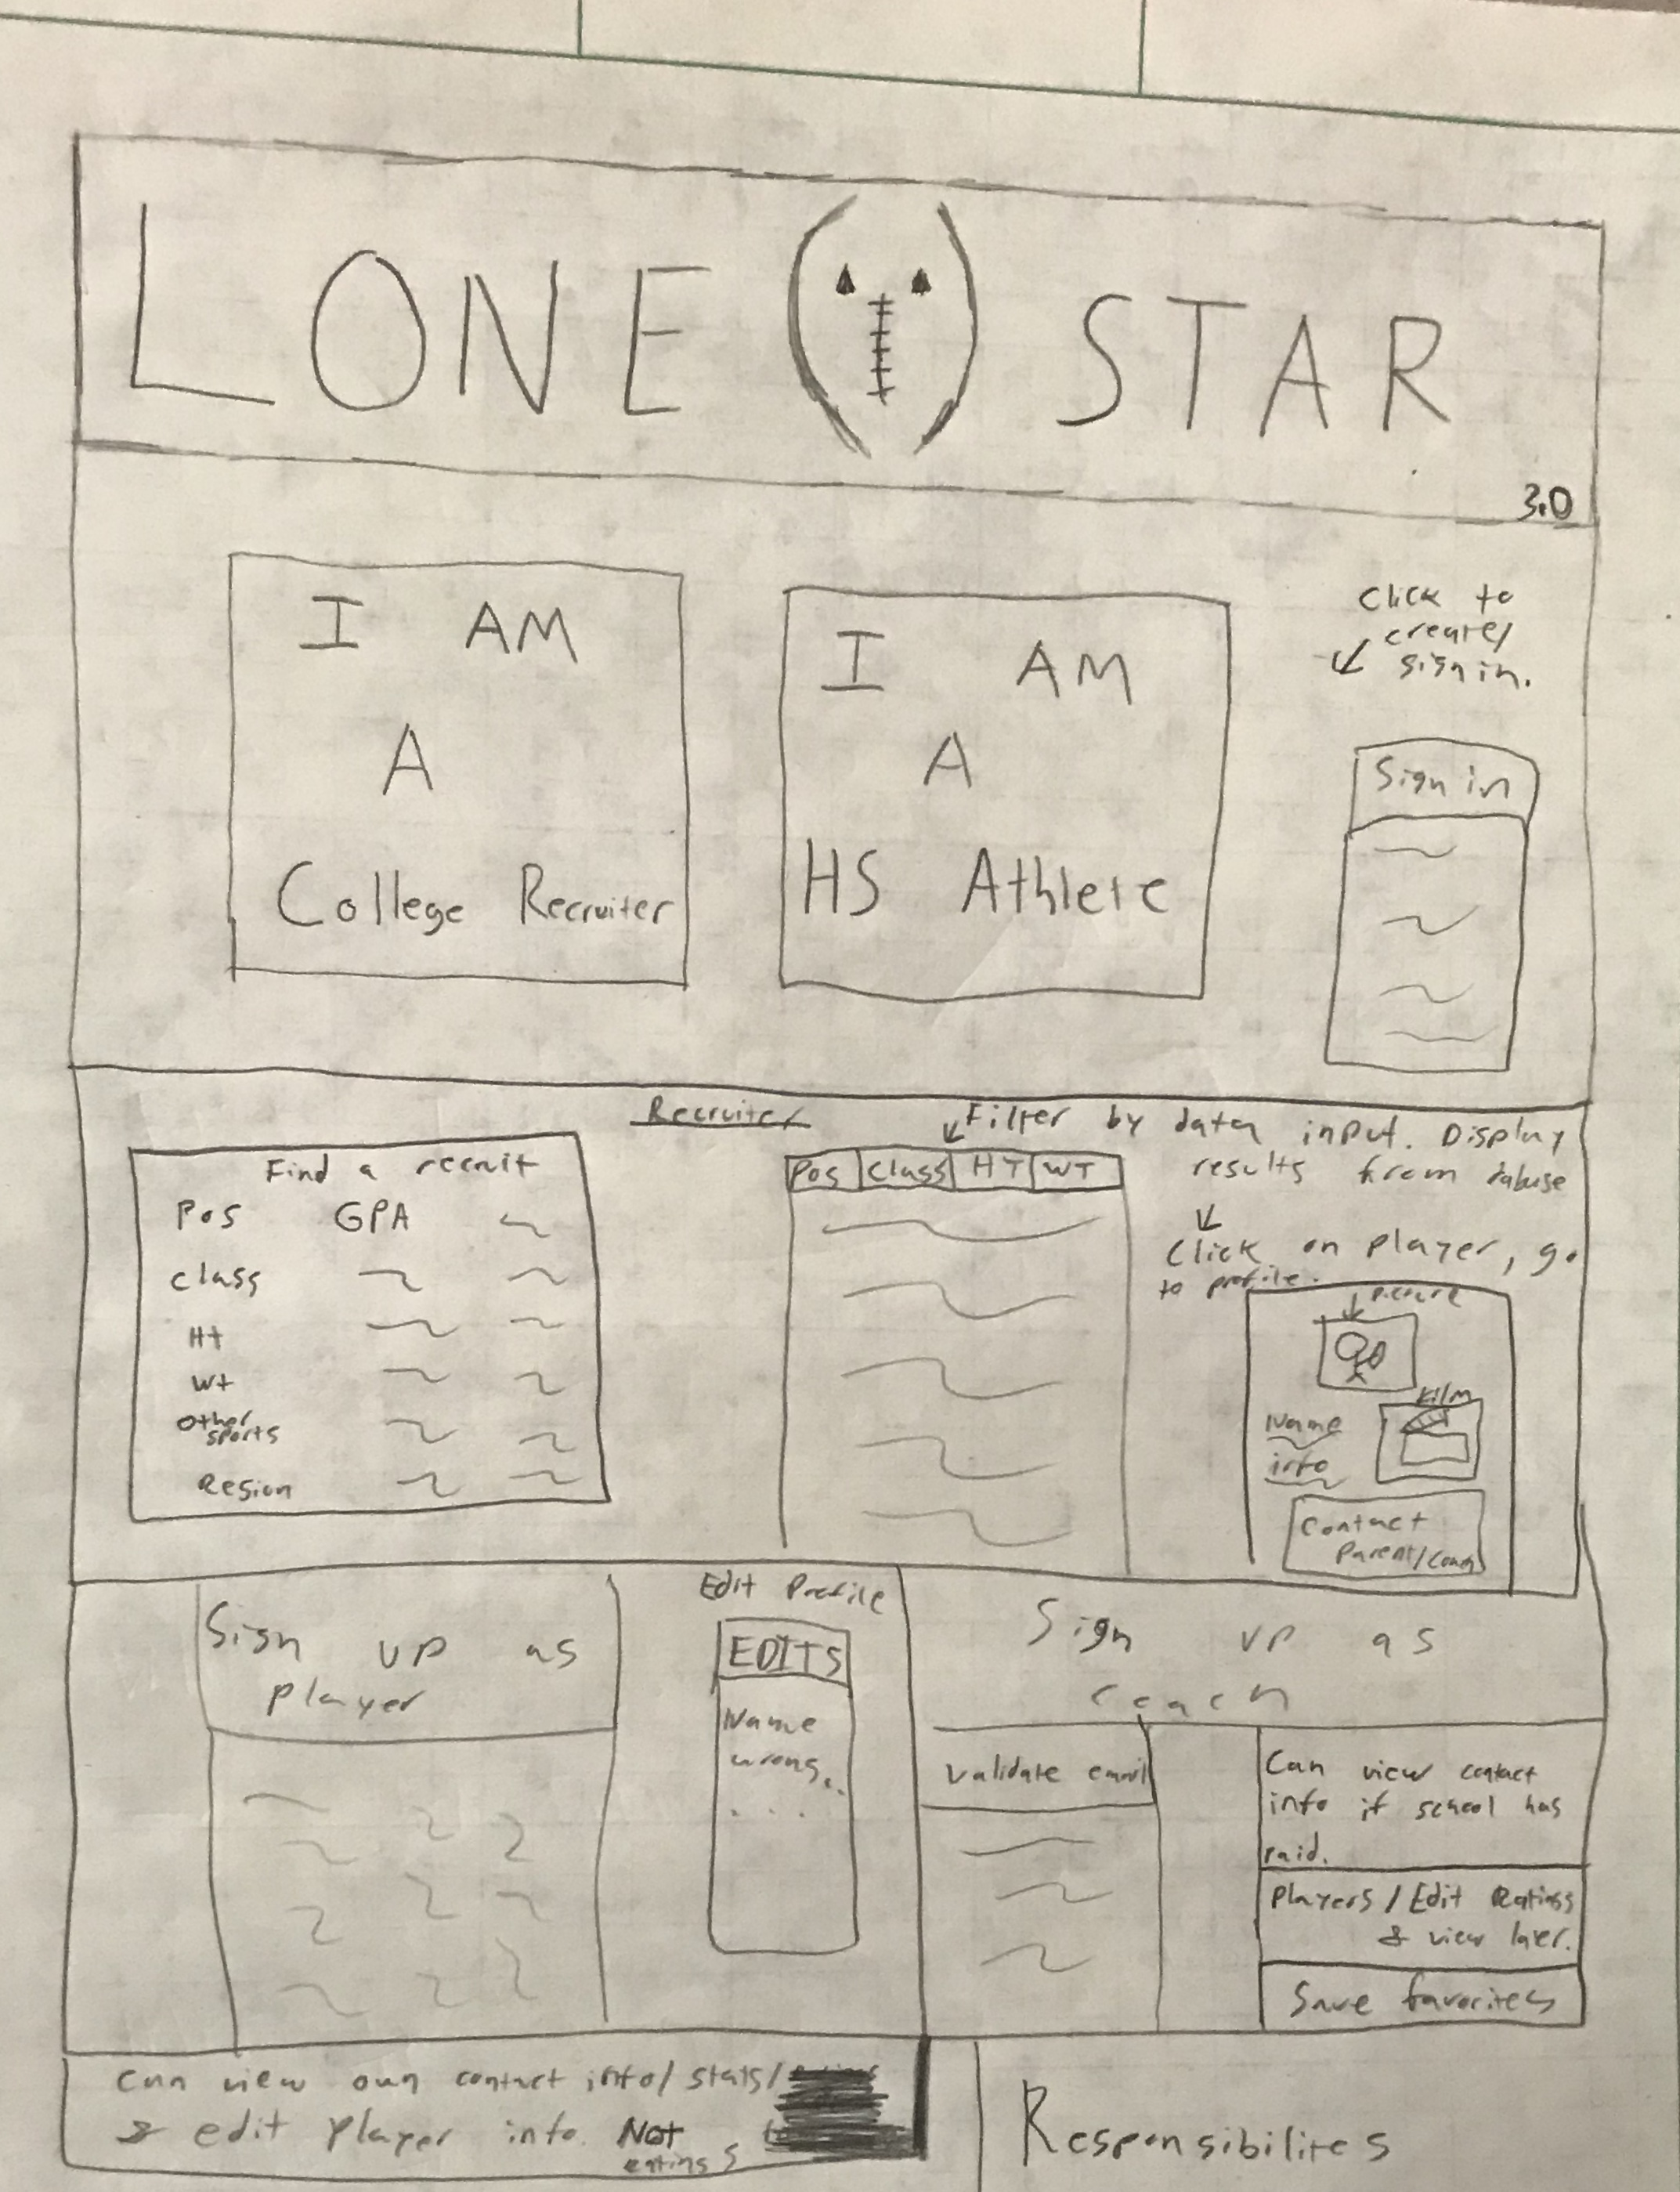 LONE STAR
3.0
I AM
A
College Recruiter
I AM
A
HS Athlete
Click to
create/
sign in.
Sign in
Recruiter
Find a recruit
Pos GPA
class
Ht
Wt
Other
sports
Region
Filter by data input. Display
results from
Pos Class HT WT
Click on player, go
to profile.
picture
Film
Name
info
Contact
Parent/Coach
Sign up as
player
Edit Profile
EDITS
Name
wrong...
. . .
Sign up as
coach
Validate email
Can view contact
info if school has
paid.
Players/Edit Ratings
& view later.
Save favorites
Can view own contact info/stats/
& edit player info. Not
Responsibilites